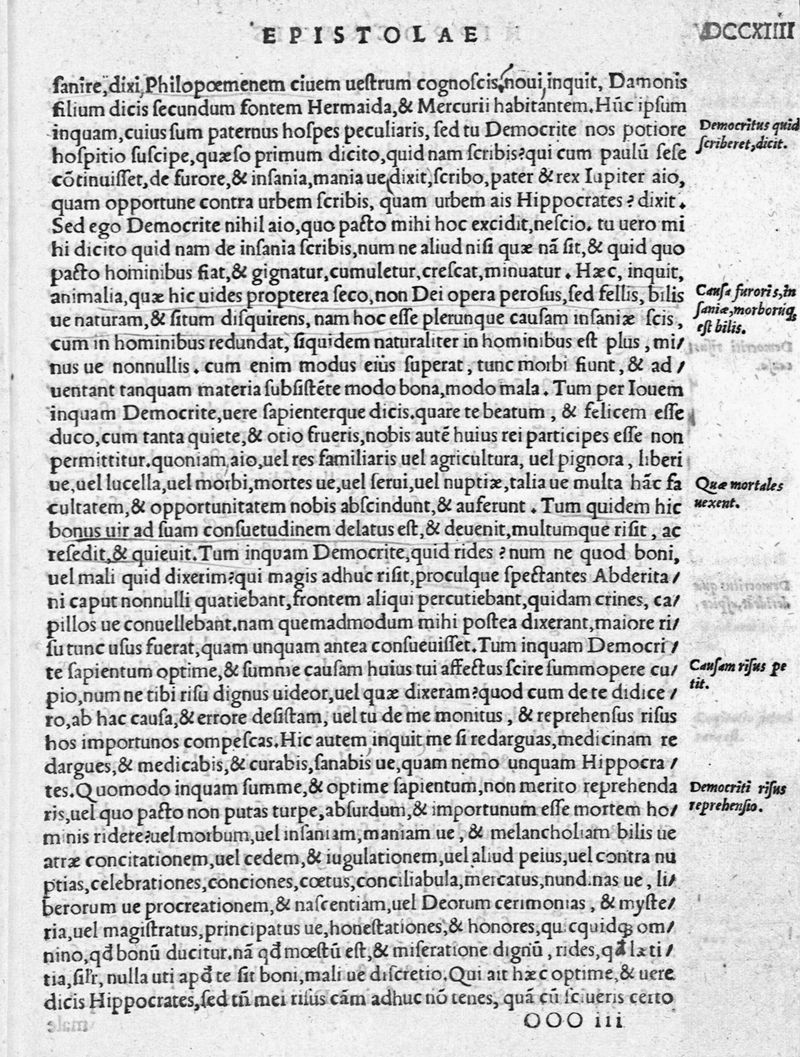 EPISTOLAE
DCCXIIII
ſanire, dixi, Philopœmenem ciuem ueſtrum cognoſcis, noui, inquit, Damonis
filium dicis ſecundum fontem Hermaida, & Mercurii habitantem. Hūc ipſum
inquam, cuius ſum paternus hoſpes peculiaris, ſed tu Democrite nos potiore
Democritus quid
hoſpitio ſuſcipe, quæſo primum dicito, quid nam ſcribis? qui cum paulū ſeſe
ſcriberet, dicit.
cōtinuiſſet, de furore, & inſania, mania ue, dixit, ſcribo, pater & rex Iupiter aio,
quam opportune contra urbem ſcribis, quam urbem ais Hippocrates? dixit.
Sed ego Democrite nihil aio, quo pacto mihi hoc excidit, neſcio. tu uero mi
hi dicito quid nam de inſania ſcribis, num ne aliud niſi quæ nā ſit, & quid quo
pacto hominibus fiat, & gignatur, cumuletur, creſcat, minuatur. Hæc, inquit,
animalia, quæ hic uides propterea ſeco, non Dei opera peroſus, ſed fellis, bilis
Cauſa furoris, in
ue naturam, & ſitum diſquirens, nam hoc eſſe plerunque cauſam inſaniæ ſcis,
ſaniæ, morborūq;
eſt bilis.
cum in hominibus redundat, ſiquidem naturaliter in hominibus eſt plus, mi/
nus ue nonnullis. cum enim modus eius ſuperat, tunc morbi fiunt, & ad/
uentant tanquam materia ſubſiſtēte modo bona, modo mala. Tum per Iouem
inquam Democrite, uere ſapienterque dicis. quare te beatum, & felicem eſſe
duco, cum tanta quiete, & otio frueris, nobis autē huius rei participes eſſe non
permittitur. quoniam, aio, uel res familiaris uel agricultura, uel pignora, liberi
ue, uel lucella, uel morbi, mortes ue, uel ſerui, uel nuptiæ, talia ue multa hāc fa
Quæ mortales
cultatem, & opportunitatem nobis abſcindunt, & auferunt. Tum quidem hic
uexent.
bonus uir ad ſuam conſuetudinem delatus eſt, & deuenit, multumque riſit, ac
reſedit, & quieuit. Tum inquam Democrite, quid rides? num ne quod boni,
uel mali quid dixerim? qui magis adhuc riſit, proculque ſpectantes Abderita/
ni caput nonnulli quatiebant, frontem aliqui percutiebant, quidam crines, ca/
pillos ue conuellebant, nam quemadmodum mihi poſtea dixerant, maiore ri/
ſu tunc uſus fuerat, quam unquam antea conſueuiſſet. Tum inquam Democri/
te ſapientum optime, & ſumme cauſam huius tui affectus ſcire ſummopere cu/
Cauſam riſus pe
tit.
pio, num ne tibi riſu dignus uideor, uel quæ dixeram? quod cum de te didice/
ro, ab hac cauſa, & errore deſiſtam, uel tu de me monitus, & reprehenſus riſus
hos importunos compeſcas. Hic autem inquit me ſi redarguas, medicinam re
dargues, & medicabis, & curabis, ſanabis ue, quam nemo unquam Hippocra/
tes. Quomodo inquam ſumme, & optime ſapientum, non merito reprehenda
Democriti riſus
ris, uel quo pacto non putas turpe, abſurdum, & importunum eſſe mortem ho/
reprehenſio.
minis ridere? uel morbum, uel inſaniam, maniam ue, & melancholiam bilis ue
atræ concitationem, uel cedem, & iugulationem, uel aliud peius, uel contra nu
ptias, celebrationes, conciones, cœtus, conciliabula, mercatus, nundinas ue, li/
berorum ue procreationem, & naſcentiam, uel Deorum cerimonias, & myſte/
ria, uel magiſtratus, principatus ue, honeſtationes, & honores, quicquidq; om/
nino, qđ bonū ducitur. nā qđ mœſtū eſt, & miſeratione dignū, rides, qđ læti/
tia, ſilr, nulla uti apđ te ſit boni, mali ue diſcretio. Qui ait hæc optime, & uere
dicis Hippocrates, ſed tū mei riſus cām adhuc nō tenes, quā cū ſciueris certo
OOO iii